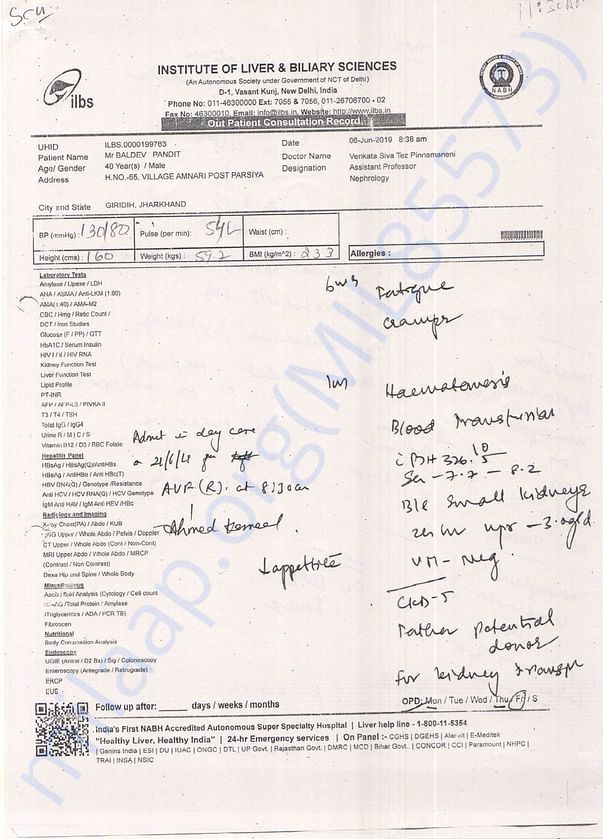 11:30am
ilbs
INSTITUTE OF LIVER & BILIARY SCIENCES
(An Autonomous Society under Government of NCT of Delhi)
D-1, Vasant Kunj, New Delhi, India
Phone No: 011-46300000 Ext: 7055 & 7056, 011-26706700 - 02
Fax No: 46300010, Email: info@ilbs.in, Website: http://www.ilbs.in
NABH
Out Patient Consultation Record
UHID ILBS.0000199763 Date 06-Jun-2019 8:38 am
Patient Name Mr BALDEV PANDIT Doctor Name Venkata Siva Tez Pinnamaneni
Age/ Gender 40 Year(s) / Male Designation Assistant Professor
Address H.NO.-65, VILLAGE AMNARI POST PARSIYA Nephrology
City and State GIRIDIH, JHARKHAND
BP (mmHg) : 130/80 Pulse (per min): Waist (cm) :
Height (cms) : 160 Weight (kgs) : 59.2 BMI (kg/m^2) : 23.3 Allergies :
Laboratory Tests
Amylase / Lipase / LDH
ANA / ASMA / Anti-LKM (1:80)
AMA(1:40) / AMA-M2
CBC / Hmg / Retic Count /
DCT / Iron Studies
Glucose (F / PP) / GTT
HbA1C / Serum Insulin
HIV I / II / HIV RNA
Kidney Function Test
Liver Function Test
Lipid Profile
PT-INR
AFP / AFP-L3 / PIVKA II
T3 / T4 / TSH
Total IgG / IgG4
Urine R / M / C / S
Vitamin B12 / D3 / RBC Folate
Hepatitis Panel
HBsAg / HBsAg(Q)/AntiHBs
HBeAg / AntiHBe / Anti HBc(T)
HBV DNA(Q) / Genotype /Resistance
Anti HCV / HCV RNA(Q) / HCV Genotype
IgM Anti HAV / IgM Anti HEV /HBc
Radiology and Imaging
X-ray Chest(PA) / Abdo / KUB
USG Upper / Whole Abdo / Pelvis / Doppler
CT Upper / Whole Abdo (Cont / Non-Cont)
MRI Upper Abdo / Whole Abdo / MRCP
(Contrast / Non Contrast)
Dexa Hip and Spine / Whole Body
Miscellaneous
Ascitic fluid Analysis (Cytology / Cell count
/Total Protein / Amylase
/Triglycerides / ADA / PCR TB)
Fibroscan
Nutritional
Body Composition Analysis
Endoscopy
UGIE (Antral / D2 Bx) / Sig / Colonoscopy
Enteroscopy (Antegrade / Retrograde)
ERCP
EUS
Admit in day care
AVF (R). at 8:30am
Ahmed
↓appetite
Fatigue
cramps
Haematemesis
Blood transfusion
8.2
B/L small kidneys
VM - Neg.
CKD-5
Father potential
donor
For kidney transpl
OPD: Mon / Tue / Wed / Thu / Fri / S
Follow up after: ______ days / weeks / months
India's First NABH Accredited Autonomous Super Specialty Hospital | Liver help line - 1-800-11-5354
"Healthy Liver, Healthy India" | 24-hr Emergency services | On Panel :- CGHS | DGEHS | Alankit | E-Meditek
| Genins India | ESI | DU | IUAC | ONGC | DTL | UP Govt. | Rajasthan Govt. | DMRC | MCD | Bihar Govt.. | CONCOR | CCI | Paramount | NHPC |
TRAI | INSA | NSIC
milaap.org(MIL85573)